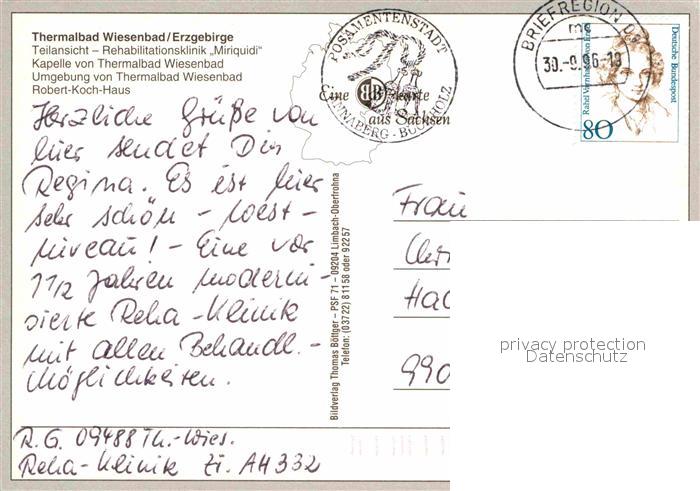 Thermalbad Wiesenbad/Erzgebirge
Teilansicht – Rehabilitationsklinik „Miriquidi"
Kapelle von Thermalbad Wiesenbad
Umgebung von Thermalbad Wiesenbad
Robert-Koch-Haus
Herzliche Grüße von
hier sendet Dir
Regina. Es ist hier
sehr schön – West-
niveau! – Eine vor
1 1/2 Jahren moderni-
sierte Reha-Klinik
mit allen Behandl.-
Möglichkeiten.
R.G. 09488 Th.-Wies.
Reha-Klinik Zi. AH 332
POSAMENTENSTADT
ANNABERG-BUCHHOLZ
Eine BB Karte
aus Sachsen
Bildverlag Thomas Böttger – PSF 71 – 09204 Limbach-Oberfrohna
Telefon: (03722) 81158 oder 92257
BRIEFREGION
30.-9.96
Rahel Varnhagen von Ense
Deutsche Bundespost
80
Frau
990
privacy protection
Datenschutz